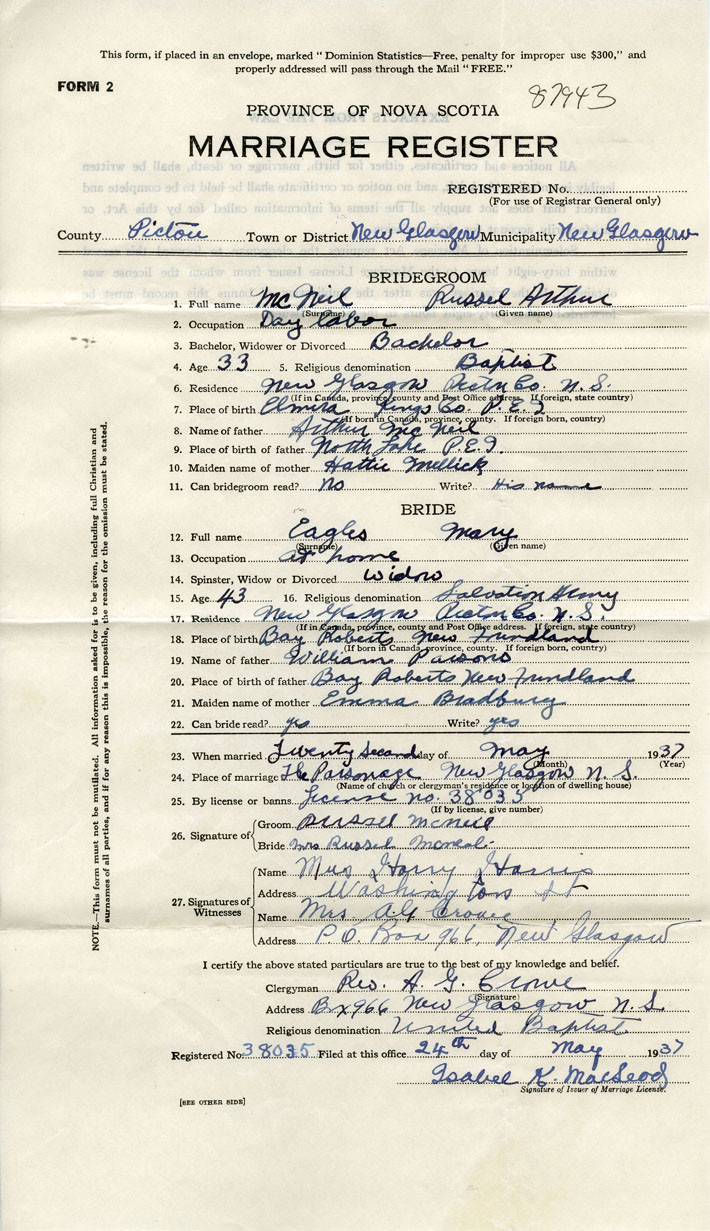 This form, if placed in an envelope, marked "Dominion Statistics—Free, penalty for improper use $300," and
properly addressed will pass through the Mail "FREE."
FORM 2
87943
PROVINCE OF NOVA SCOTIA
MARRIAGE REGISTER
REGISTERED No.
(For use of Registrar General only)
County Pictou Town or District New Glasgow Municipality New Glasgow
BRIDEGROOM
1. Full name McNeil Russel Arthur
(Surname) (Given name)
2. Occupation Day labor
3. Bachelor, Widower or Divorced Bachelor
4. Age 33 5. Religious denomination Baptist
6. Residence New Glasgow Picton Co. N.S.
(If in Canada, province, county and Post Office address. If foreign, state country)
7. Place of birth Elmira Kings Co. P.E.I
(If born in Canada, province, county. If foreign born, country)
8. Name of father Arthur McNeil
9. Place of birth of father North Lake P.E.I.
10. Maiden name of mother Hattie Mellick
11. Can bridegroom read? No Write? His name
BRIDE
12. Full name Eagles Mary
(Surname) (Given name)
13. Occupation at home
14. Spinster, Widow or Divorced widow
15. Age 43 16. Religious denomination Salvation Army
17. Residence New Glasgow Picton Co. N.S.
(If in Canada, province, county and Post Office address. If foreign, state country)
18. Place of birth Bay Roberts New Fundland
(If born in Canada, province, county. If foreign born, country)
19. Name of father William Parsons
20. Place of birth of father Bay Roberts New Fundland
21. Maiden name of mother Emma Bradbury
22. Can bride read? yes Write? yes
23. When married Twenty second day of May 1937
(Month) (Year)
24. Place of marriage The Parsonage New Glasgow N.S.
(Name of church or clergyman's residence or location of dwelling house)
25. By license or banns License no. 38035
(If by license, give number)
26. Signature of Groom Russel McNeil
Bride Mrs Russel Mcneal.
27. Signatures of Witnesses
Name Mrs Harry Harris
Address Washington St
Name Mrs A G Crowe
Address P.O. Box 966, New Glasgow
I certify the above stated particulars are true to the best of my knowledge and belief.
Clergyman Rev. A. G. Crowe
(Signature)
Address Bx 966 New Glasgow N.S.
Religious denomination United Baptist
Registered No. 38035 Filed at this office 24th day of May 1937
Isabel K. MacLeod
Signature of Issuer of Marriage License.
[SEE OTHER SIDE]
NOTE.—This form must not be mutilated. All information asked for is to be given, including full Christian and
surnames of all parties, and if for any reason this is impossible, the reason for the omission must be stated.